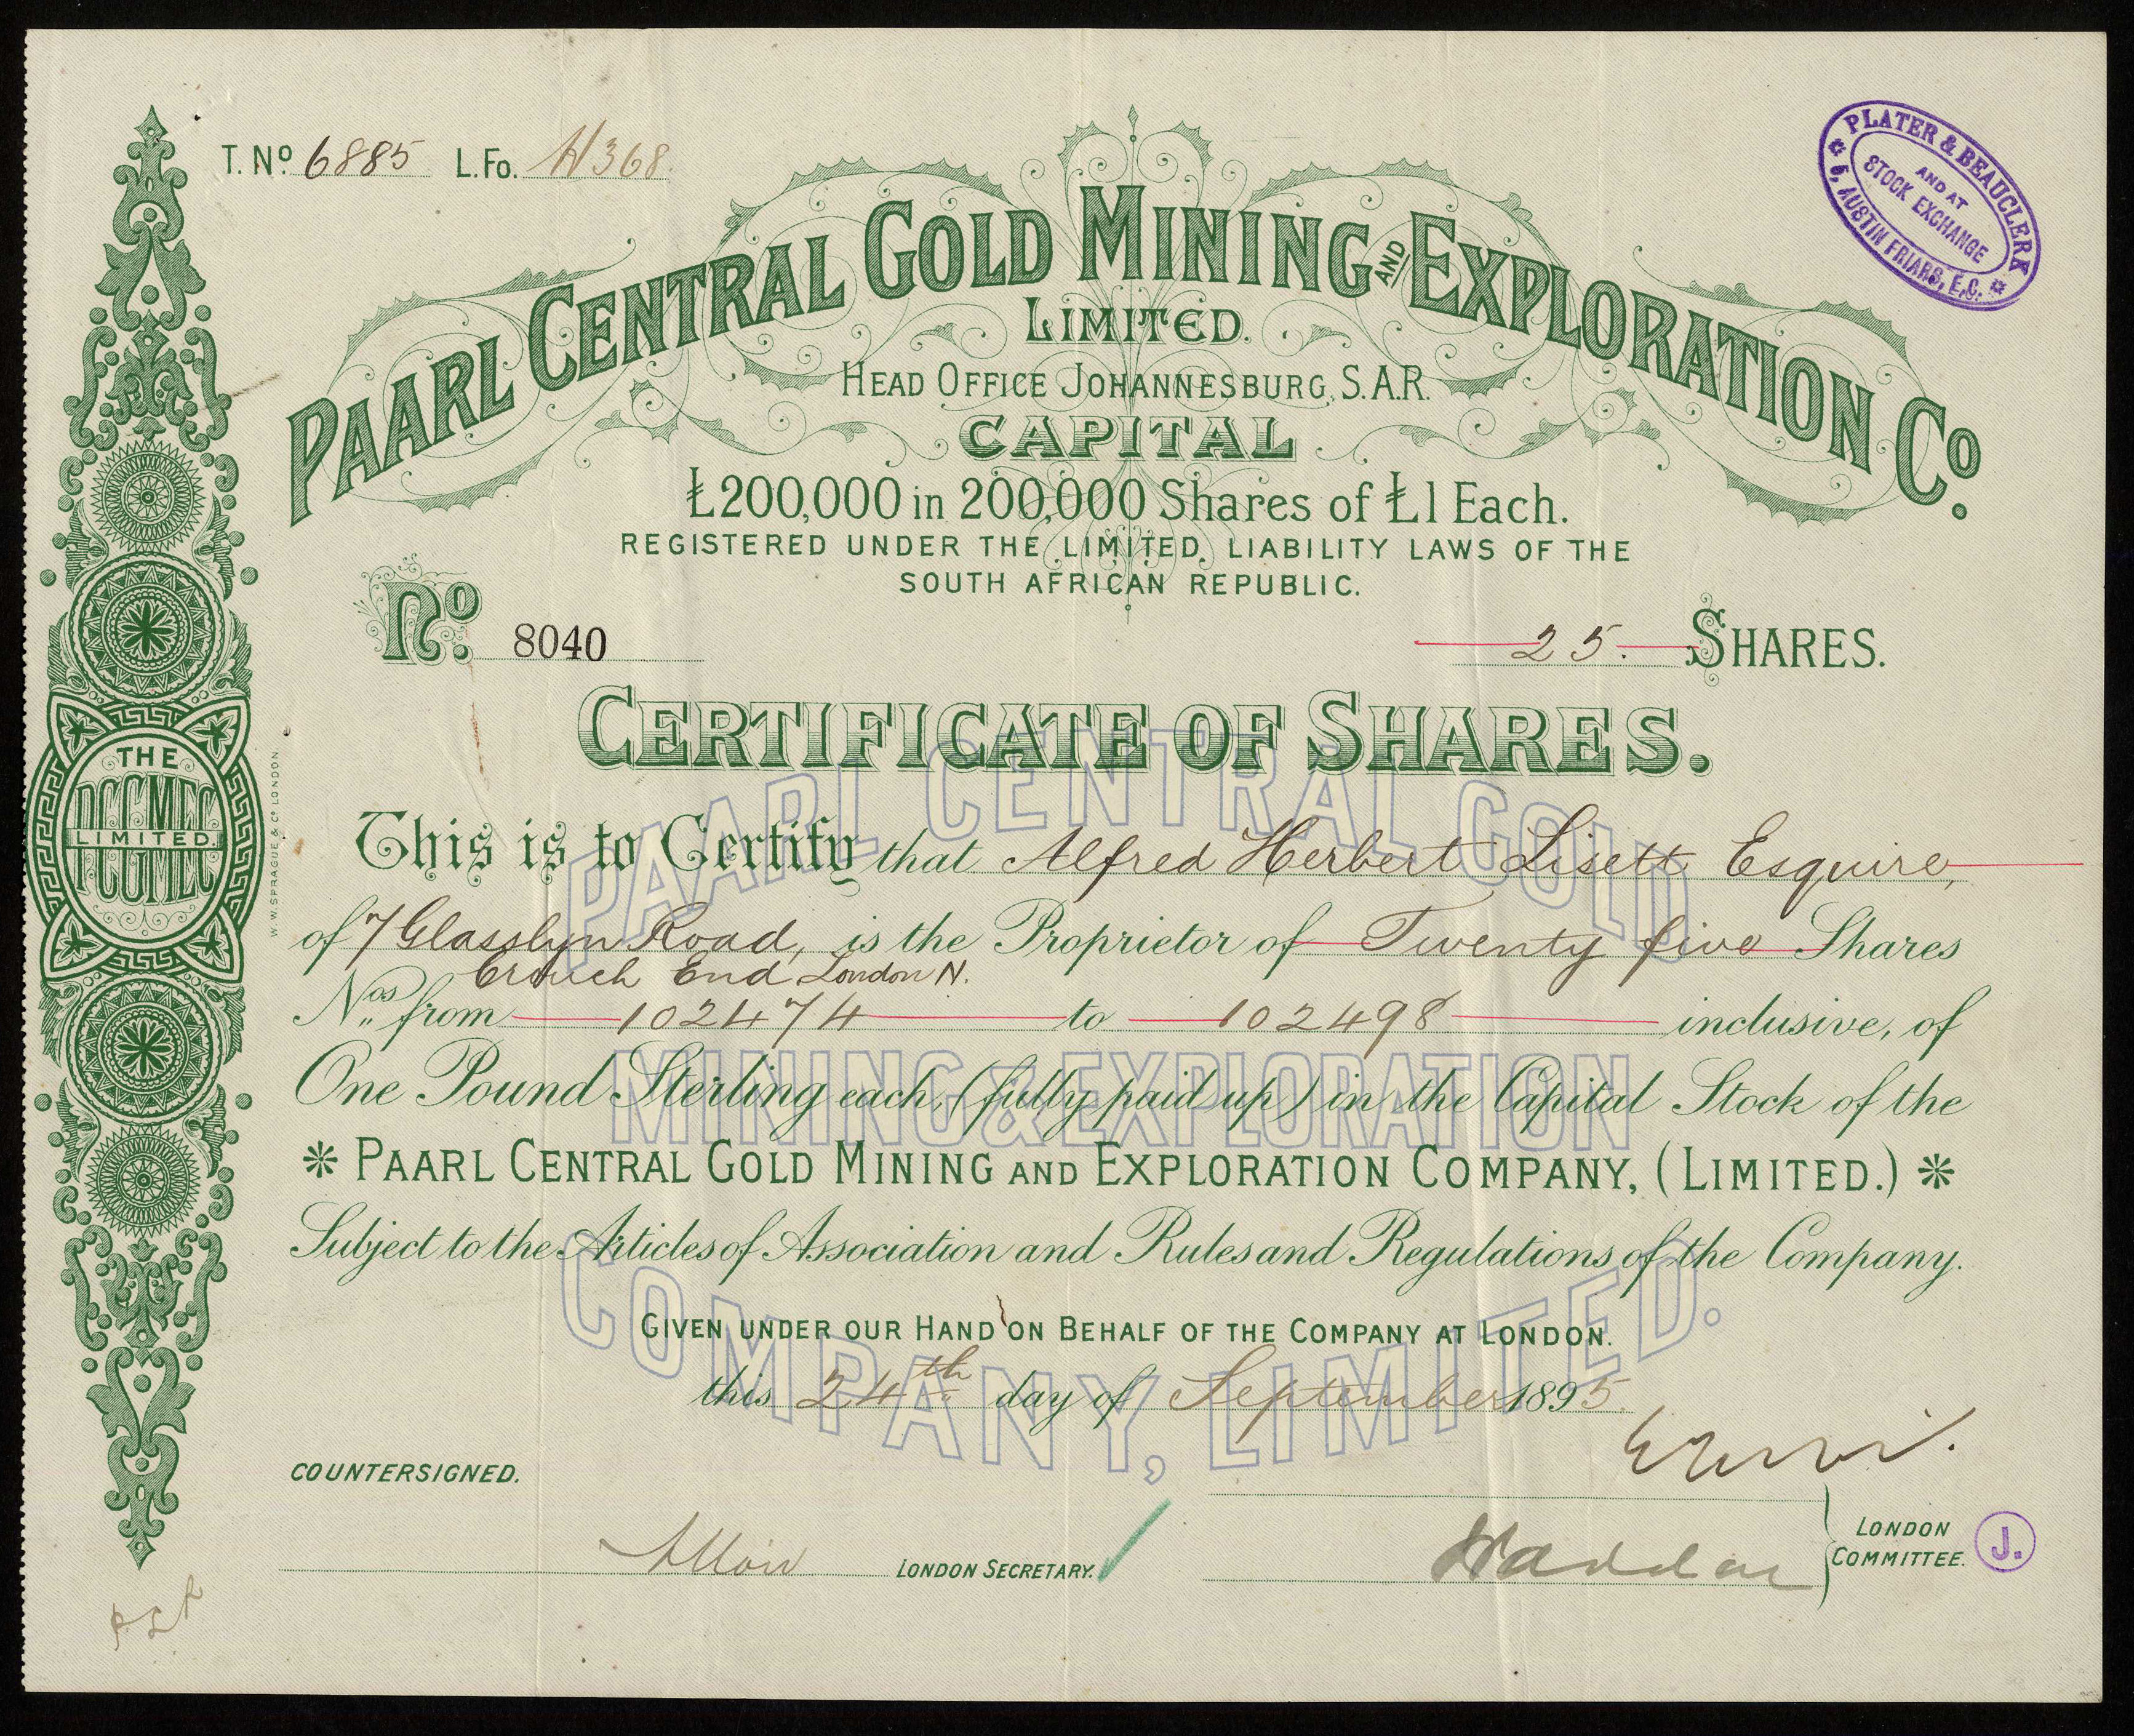 T. Nº 6885 L. Fo. H368.
PLATER & BEAUCLERK
AND AT
STOCK EXCHANGE
5, AUSTIN FRIARS, E.C.
PAARL CENTRAL GOLD MINING AND EXPLORATION Cº.
LIMITED.
HEAD OFFICE JOHANNESBURG, S.A.R.
CAPITAL
£200,000 in 200,000 Shares of £1 Each.
REGISTERED UNDER THE LIMITED LIABILITY LAWS OF THE
SOUTH AFRICAN REPUBLIC.
Nº. 8040
25. SHARES.
CERTIFICATE OF SHARES.
This is to Certify that Alfred Herbert Lisett Esquire,
of 7 Glasslyn Road, is the Proprietor of Twenty five Shares
Crouch End London N.
Nos. from 102474 to 102498 inclusive, of
One Pound Sterling each, (fully paid up) in the Capital Stock of the
* PAARL CENTRAL GOLD MINING AND EXPLORATION COMPANY, (LIMITED.) *
Subject to the Articles of Association and Rules and Regulations of the Company.
GIVEN UNDER OUR HAND ON BEHALF OF THE COMPANY AT LONDON.
this 24th day of September 1895.
COUNTERSIGNED.
LONDON SECRETARY.
LONDON
COMMITTEE.
J.
THE
PCGMEC
LIMITED.
W. W. SPRAGUE & Cº LONDON.
PAARL CENTRAL GOLD
MINING & EXPLORATION
COMPANY, LIMITED.